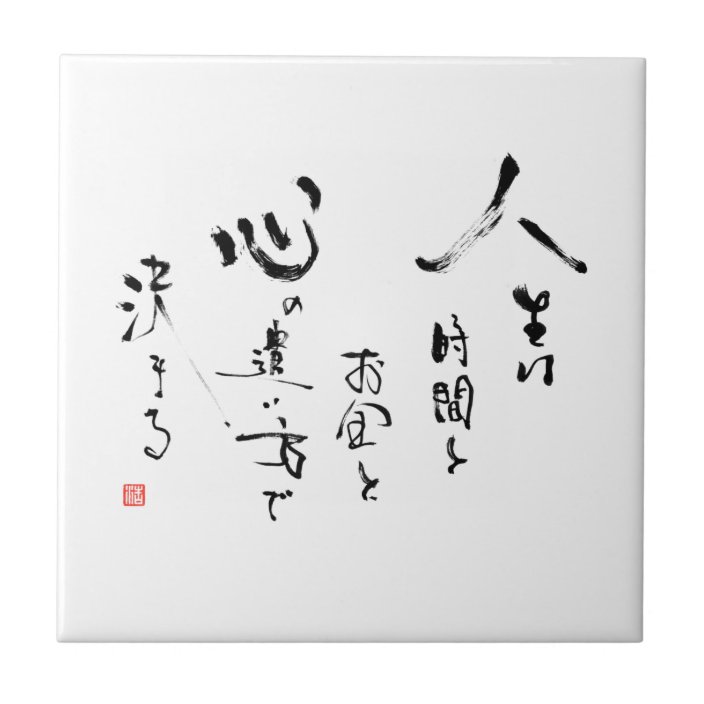 人生は
時間と
お金と
心の遣い方で
決まる